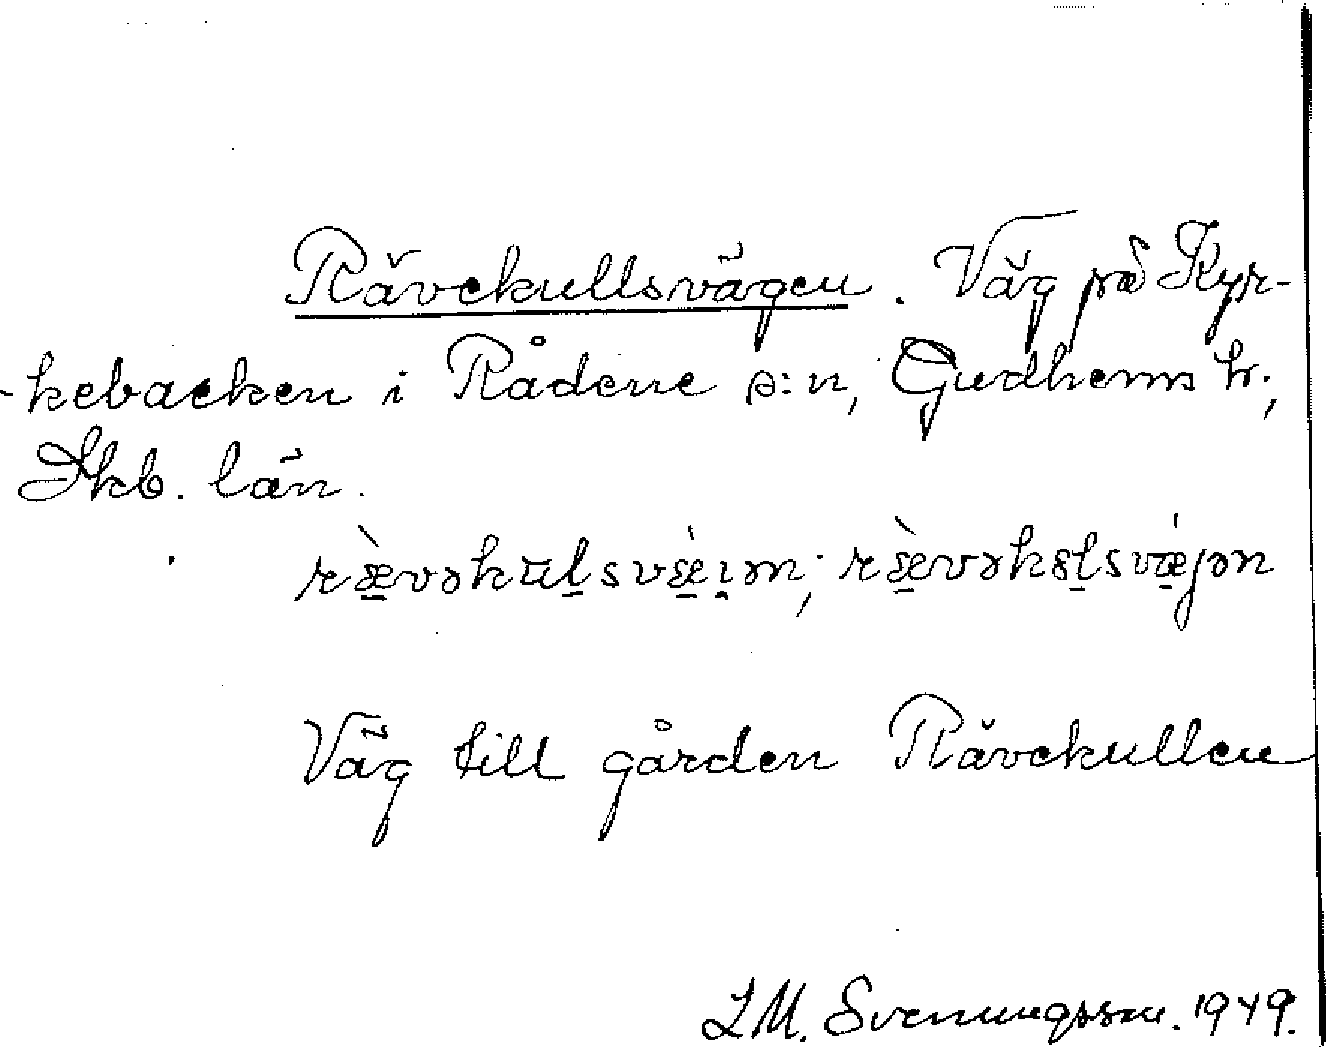 Rävekullsvägen. Väg på Kyr-
-kebacken i Rådene s:n, Gudhems hr.,
Skb. län.
rævəkulsvæiən; rævəkslsvæjən
Väg till gården Rävekullen
L M. Svenungsson. 1949.